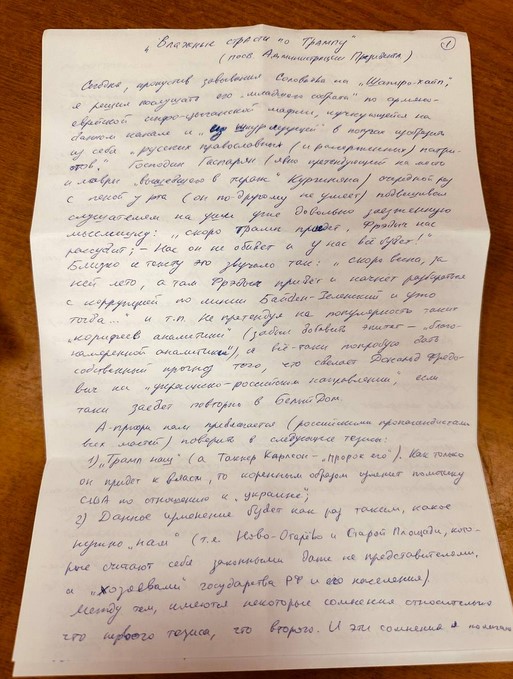 ①
„Влажные страсти по Трампу"
(посв. Администрации Президента)
Сегодня, пропустив завывания Соловьёва на „Шапиро-хайп",
я решил послушать его „младшего собрата" по армяно-
еврейской инфо-цыганской мафии, пучкующейся на
данном канале и „ шкурмующей" в потугах изобразить
из себя „русских православных (и расограненных) патри-
отов." Господин Гаспарян (явно претендующий на место
и лавры „вышедшего в тираж" Кургиняна) очередной раз
с пеной у рта (он по-другому не умеет) подвешивал
слушателям на уши уже довольно заезженную
мыслишку: „скоро Трамп придет, Фрэдыч нас
рассудит; – Нас он не обидет и у нас всё будет!"
Близко к тексту это звучало так: „скоро весна, за
ней лето, а там Фрэдыч придёт и начнет разбираться
с коррупцией по линии Байден-Зеленский и ужо
тогда..." и т.п. Не претендуя на популярность таких
„корифеев аналитики" (забыл добавить эпитет – „благо-
намеренной аналитики"), а всё-таки попробую дать
собственный прогноз того, что сделает Дональд Фредо-
вич на „украинско-российском направлении", если
таки заедет повторно в Белый Дом.
А-приори нам предлагается (российскими пропагандистами
всех мастей) поверить в следующие тезисы:
1) „Трамп наш" (а Таккер Карлсон – „пророк его"). Как только
он придёт к власти, то коренным образом изменит политику
США по отношению к „украине";
2) Данное изменение будет как раз таким, какое
нужно „нам" (т.е. Ново-Огарёво и Старой Площади, кото-
рые считают себя законными даже не представителями,
а „хозяевами" государства РФ и его населения).
Между тем, имеются некоторые сомнения относительно
что первого тезиса, что второго. И эти сомнения я